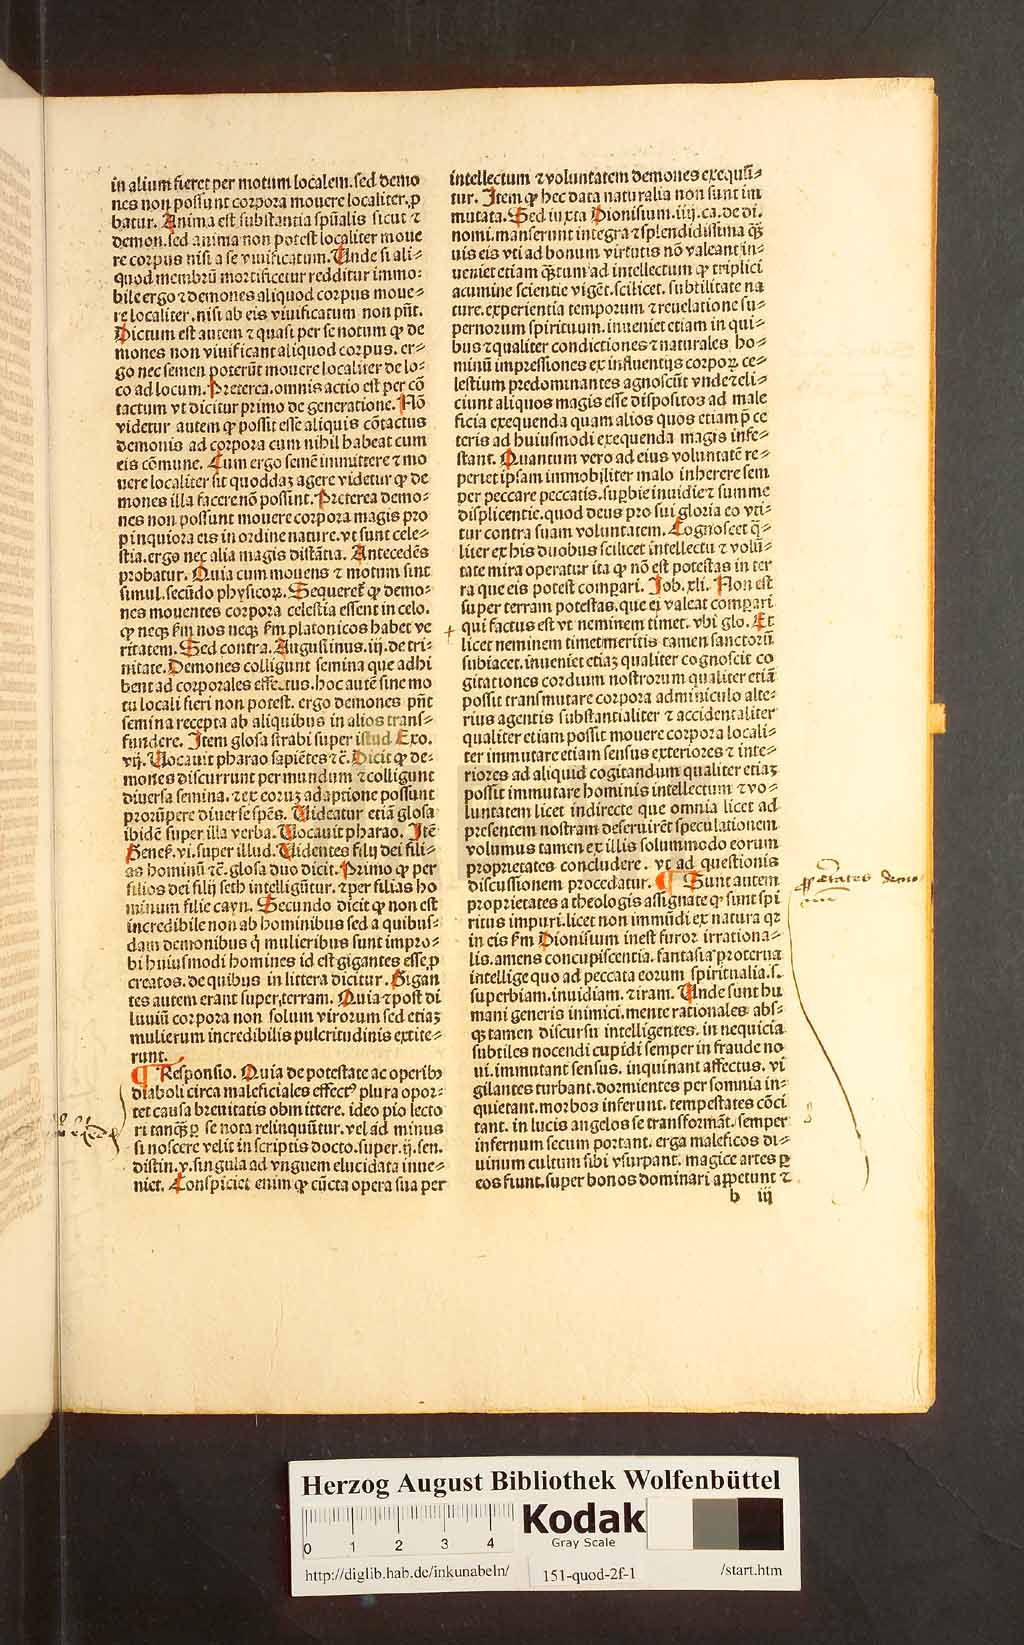 in alium fieret per motum localem. sed demo
nes non possunt corpora mouere localiter. ꝓ
batur. Anima est substantia spūalis sicut ⁊
demon. sed anima non potest localiter moue
re corpus nisi a se viuificatum. Unde si ali⸗
quod membrū mortificetur redditur immo⸗
bile ergo ⁊ demones aliquod corpus moue⸗
re localiter. nisi ab eis viuificatum non pn̄t.
Dictum est autem ⁊ quasi per se notum ꝙ de
mones non viuificant aliquod corpus. er⸗
go nec semen poterūt mouere localiter de lo⸗
co ad locum. Preterea. omnis actio est per cō
tactum vt dicitur primo de generatione. Nō
videtur autem ꝙ possit esse aliquis cōtactus
demonis ad corpora cum nihil habeat cum
eis cōmune. Cum ergo semē immittere ⁊ mo
uere localiter sit quoddaꝫ agere videtur ꝙ de
mones illa facere nō possint. Preterea demo⸗
nes non possunt mouere corpora magis pro
pinquiora eis in ordine nature. vt sunt cele⸗
stia. ergo nec alia magis distātia. Antecedēs
probatur. Quia cum mouens ⁊ motum sint
simul. secūdo physicoꝝ. Sequeret̄ ꝙ demo⸗
nes mouentes corpora celestia essent in celo.
ꝙ neqꝫ fm nos neqꝫ fm platonicos habet ve
ritatem. Sed contra. Augustinus. iij. de tri⸗
nitate. Demones colligunt semina que adhi
bent ad corporales effectus. hoc autē sine mo
tu locali fieri non potest. ergo demones pn̄t
semina recepta ab aliquibus in alios trans⸗
fundere. Item glosa strabi super istud Exo.
vij. Uocauit pharao sapiētes ⁊c̄. Dicit ꝙ de⸗
mones discurrunt per mundum ⁊ colligunt
diuersa semina. ⁊ ex eoruꝫ adaptione possunt
prorūpere diuerse spēs. Uideatur etiā glosa
ibidē super illa verba. Uocauit pharao. Itē
Genes̄. vi. super illud. Uidentes filij dei fili⸗
as hominū ⁊c̄. glosa duo dicit. Primo ꝙ per
filios dei filij seth intelligūtur. ⁊ per filias ho
minum filie cayn. Secundo dicit ꝙ non est
incredibile non ab hominibus sed a quibus⸗
dam demonibus q̄ mulieribus sunt impro⸗
bi huiusmodi homines id est gigantes esse ꝓ
creatos. de quibus in littera dicitur. Gigan
tes autem erant super terram. Quia ⁊ post di
luuiū corpora non solum virorum sed etiaꝫ
mulierum incredibilis pulcritudinis extite⸗
runt.
¶ Responsio. Quia de potestate ac operibꝰ
diaboli circa maleficiales effectꝰ plura opor⸗
tet causa breuitatis obmittere. ideo pio lecto
ri tanqꝫ ꝑ se nota relinquūtur. vel ad minus
si noscere velit in scriptis docto. super. ij. sen.
distin. v. singula ad vnguem elucidata inue⸗
niet. Conspiciet enim ꝙ cūcta opera sua per
intellectum ⁊ voluntatem demones exequū⸗
tur. Item ꝙ hec data naturalia non sunt im
mutata. Sed iuxta Dionisium. iiij. ca. de di.
nomi. manserunt integra ⁊ splendidissima qꝫ̄
uis eis vti ad bonum virtutis nō valeant in⸗
ueniet etiam qꝫ̄tum ad intellectum ꝙ triplici
acumine scientie vigēt. scilicet. subtilitate na
ture. experientia temporum ⁊ reuelatione su⸗
pernorum spirituum. inueniet etiam in qui⸗
bus ⁊ qualiter condictiones ⁊ naturales ho⸗
minū impressiones ex influentijs corpoꝝ ce⸗
lestium predominantes agnoscūt vnde ⁊ eli⸗
ciunt aliquos magis esse dispositos ad male
ficia exequenda quam alios quos etiam p̄ ce
teris ad huiusmodi exequenda magis infe⸗
stant. Quantum vero ad eius voluntatē re⸗
periet ipsam immobiliter malo inherere sem
per peccare peccatis. suꝑbie inuidie ⁊ summe
displicentie. quod deus pro sui gloria eo vti⸗
tur contra suam voluntatem. Cognoscet q̄⸗
liter ex his duobus scilicet intellectu ⁊ volū⸗
tate mira operatur ita ꝙ nō est potestas in ter
ra que eis potest comꝑari. Job. xli. Non est
super terram potestas. que ei valeat comꝑari
qui factus est vt neminem timet. vbi glo. Et
licet neminem timet meritis tamen sanctorū
subiacet. inueniet etiaꝫ qualiter cognoscit co
gitationes cordium nostrorum qualiter etiā
possit transmutare corpora adminiculo alte⸗
rius agentis substantialiter ⁊ accidentaliter
qualiter etiam possit mouere corpora locali⸗
ter immutare etiam sensus exteriores ⁊ inte⸗
riores ad aliquid cogitandum qualiter etiaꝫ
possit immutare hominis intellectum ⁊ vo⸗
luntatem licet indirecte que omnia licet ad
presentem nostram deseruirēt speculationem
volumus tamen ex illis solummodo eorum
proprietates concludere. vt ad questionis
discussionem procedatur. ¶ Sunt autem
proprietates a theologis assignate ꝙ sunt spi
ritus impuri. licet non immūdi ex natura qꝛ
in eis fm Dionisium inest furor irrationa⸗
lis. amens concupiscentia. fantasia proterua
intellige quo ad peccata eorum spiritualia. s.
superbiam. inuidiam. ⁊ iram. Unde sunt hu
mani generis inimici. mente rationales abs⸗
qꝫ tamen discursu intelligentes. in nequicia
subtiles nocendi cupidi semper in fraude no
ui. immutant sensus. inquinant affectus. vi
gilantes turbant. dormientes per somnia in⸗
quietant. morbos inferunt. tempestates cōci
tant. in lucis angelos se transformāt. semper
infernum secum portant. erga maleficos di⸗
uinum cultum sibi vsurpant. magice artes ꝑ
eos fiunt. super bonos dominari appetunt ⁊
b iij
Herzog August Bibliothek Wolfenbüttel
0 1 2 3 4
Kodak
Gray Scale
http://diglib.hab.de/inkunabeln/ 151-quod-2f-1 /start.htm